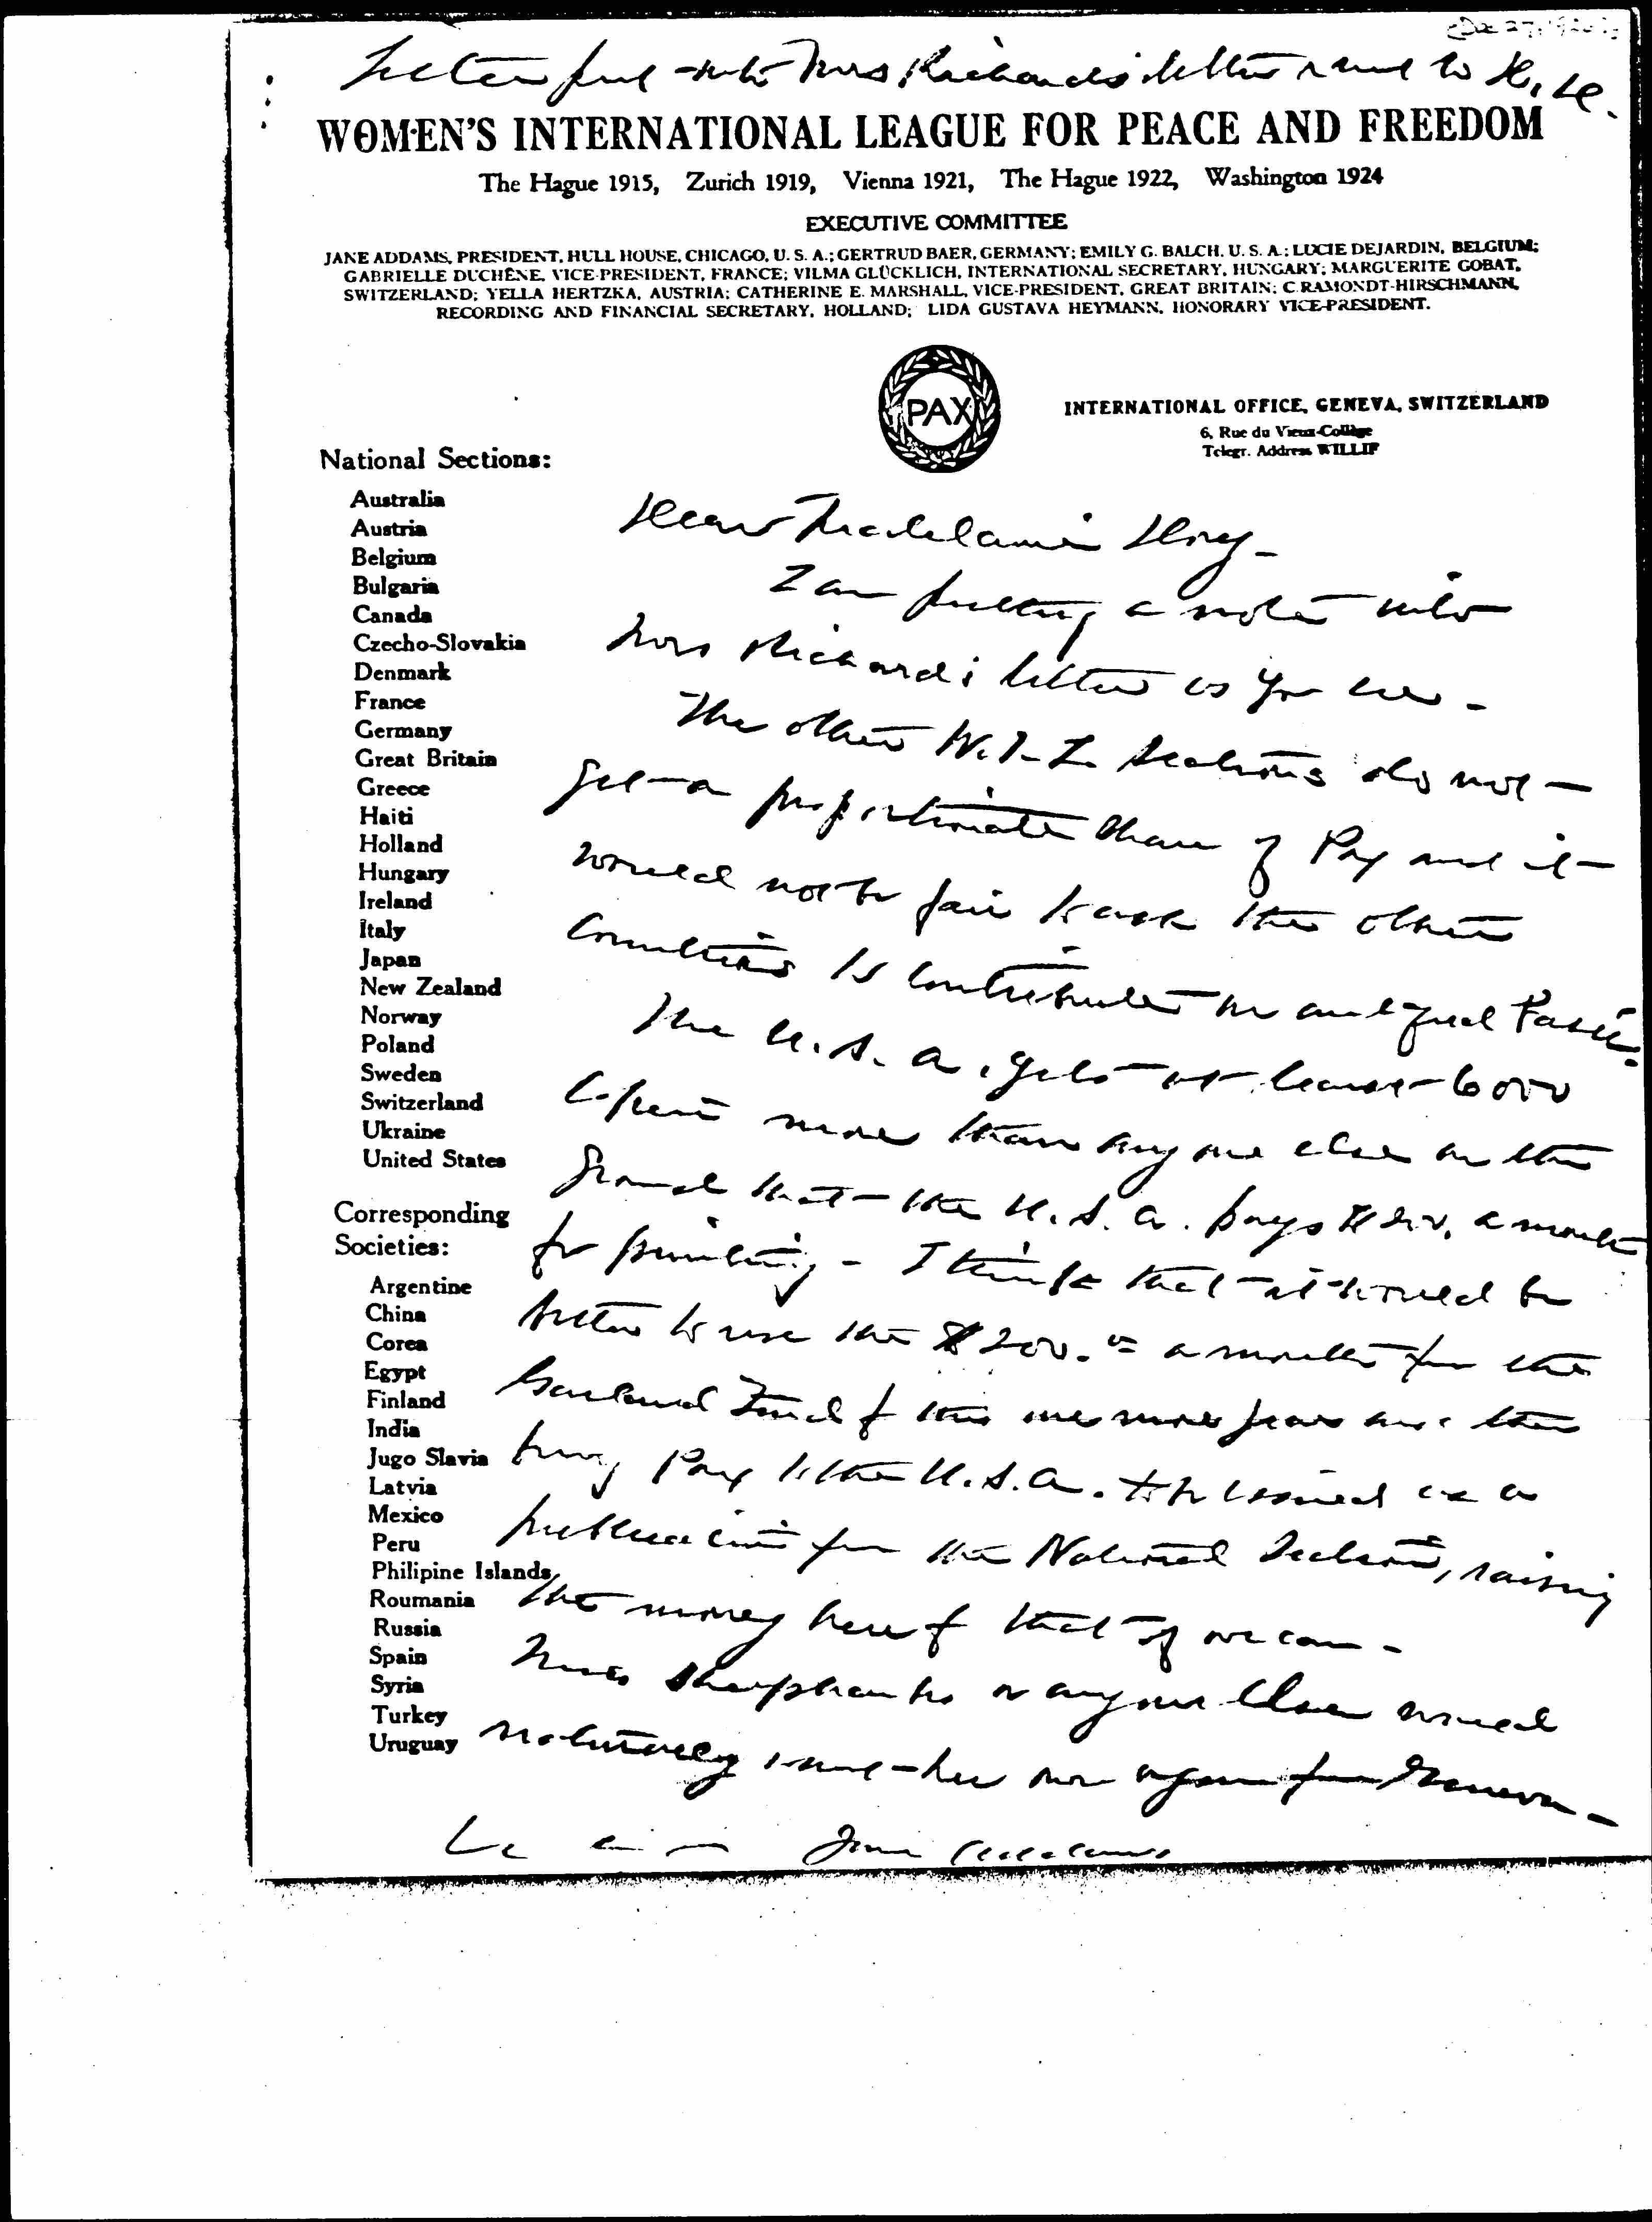 Dec 27, 192
Letter put into Mrs Richards's letter & sent to H. H.
WOMEN'S INTERNATIONAL LEAGUE FOR PEACE AND FREEDOM
The Hague 1915, Zurich 1919, Vienna 1921, The Hague 1922, Washington 1924
EXECUTIVE COMMITTEE
JANE ADDAMS, PRESIDENT, HULL HOUSE, CHICAGO, U. S. A.; GERTRUD BAER, GERMANY; EMILY G. BALCH, U. S. A.; LUCIE DEJARDIN, BELGIUM;
GABRIELLE DUCHÊNE, VICE-PRESIDENT, FRANCE; VILMA GLÜCKLICH, INTERNATIONAL SECRETARY, HUNGARY; MARGUERITE GOBAT,
SWITZERLAND; YELLA HERTZKA, AUSTRIA; CATHERINE E. MARSHALL, VICE-PRESIDENT, GREAT BRITAIN; C. RAMONDT-HIRSCHMANN,
RECORDING AND FINANCIAL SECRETARY, HOLLAND; LIDA GUSTAVA HEYMANN, HONORARY VICE-PRESIDENT.
PAX
INTERNATIONAL OFFICE, GENEVA, SWITZERLAND
6, Rue du Vieux-Collège
Telegr. Address WILLIF
National Sections:
Australia
Austria
Belgium
Bulgaria
Canada
Czecho-Slovakia
Denmark
France
Germany
Great Britain
Greece
Haiti
Holland
Hungary
Ireland
Italy
Japan
New Zealand
Norway
Poland
Sweden
Switzerland
Ukraine
United States
Corresponding
Societies:
Argentine
China
Corea
Egypt
Finland
India
Jugo Slavia
Latvia
Mexico
Peru
Philipine Islands
Roumania
Russia
Spain
Syria
Turkey
Uruguay
Dear Madelaine Doty -
I am putting a note into
Mrs Richard's letter as you see -
The other W. I. L. sections do not
get a proportionate share of Pax and it
would not be fair to ask the other
countries to contribute on an equal basis.
The U. S. A. gets at least 6000
copies more than any one else on the
ground that the U. S. A. pays $200. a month
for printing - I think that it would be
better to use the $200.00 a month for the
Garland Fund for this one more year and then
bring Pax to the U. S. A. to be issued as a
publication for the National Section, raising
the money here for that if we can -
Miss Sheepshanks or anyone else would
naturally issue her own organ from Geneva -
Jane Addams